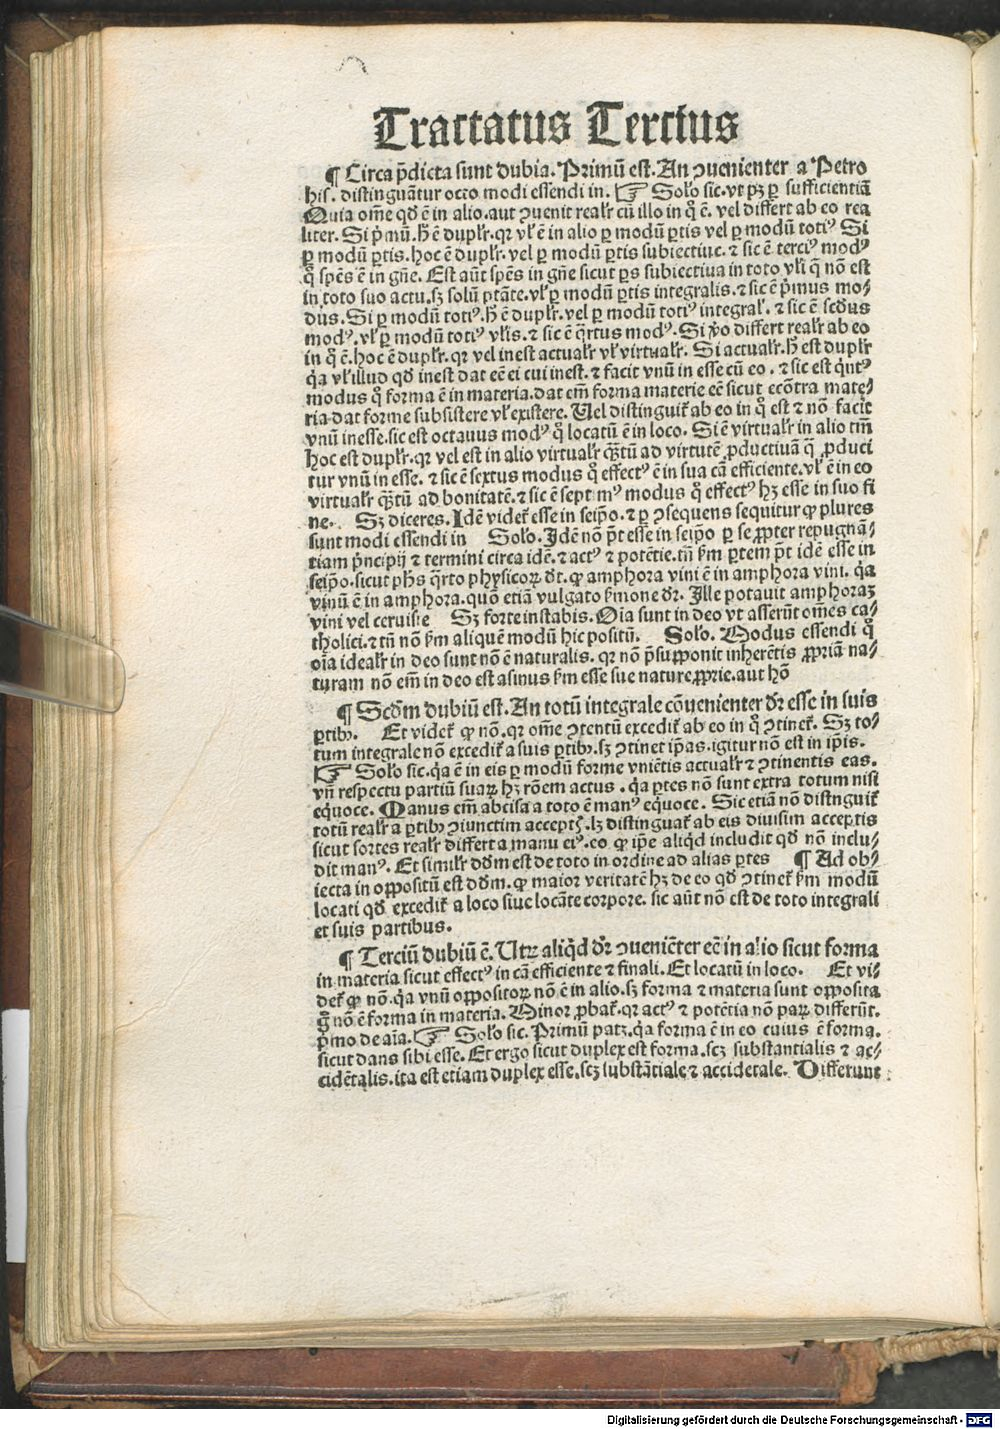 Tractatus Tercius
¶ Circa p̄dicta sunt dubia. Primū est. An ↄuenienter a Petro
his. distinguātur octo modi essendi in. ☞ Solo sic. vt pꝫ ꝑ sufficientiā
Quia om̄e qd̄ ē in alio. aut ↄuenit realr̄ cū illo in q̊ ē. vel differt ab eo rea
liter. Si p̄mū. h̄ ē duplr̄. qr vl̄ ē in alio ꝑ modū ꝑtis vel ꝑ modū totiꝰ Si
ꝑ modū ꝑtis. hoc ē duplr̄. vel ꝑ modū ꝑtis subiectiue. ⁊ sic ē terciꝰ modꝰ
q̊ spēs ē in gn̄e. Est aūt spēs in gn̄e sicut ꝑs subiectiua in toto vl̄i q̄ nō est
in toto suo actu. sꝫ solū ptāte. vl̄ ꝑ modū ꝑtis integralis. ⁊ sic ē p̄mus mo⸗
dus. Si ꝑ modū totiꝰ. h̄ ē duplr̄. vel ꝑ modū totiꝰ integral̄. ⁊ sic ē scd̄us
modꝰ. vl̄ ꝑ modū totiꝰ vl̄is. ⁊ sic ē q̈rtus modꝰ. Si v̊o differt realr̄ ab eo
in q̊ ē. hoc ē duplr̄. qr vel inest actualr̄ vl̄ virtualr̄. Si actualr̄. h̄ est duplr̄
q̇a vl̄ illud qd̄ inest dat eē ei cui inest. ⁊ facit vnū in esse cū eo. ⁊ sic est q̇ntꝰ
modus q̊ forma ē in materia. dat em̄ forma materie eē sicut ecōtra mate⸗
ria dat forme subsistere vl̄ existere. Uel distinguit̄ ab eo in q̊ est ⁊ nō facit
vnū in esse. sic est octauus modꝰ q̊ locatū ē in loco. Si ē virtualr̄ in alio tm̄
hoc est duplr̄. qr vel est in alio virtualr̄ q̄ꝫtū ad virtutē ꝓductiuā q̄ ꝓduci
tur vnū in esse. ⁊ sic ē sextus modus q̊ effectꝰ ē in sua cā efficiente. vl̄ ē in eo
virtualr̄ q̄ꝫtū ad bonitatē. ⁊ sic ē septimꝰ modus q̊ effectꝰ hꝫ esse in suo fi
ne. Sꝫ diceres. Idē videt̄ esse in seip̄o. ⁊ ꝑ ↄsequens sequitur ꝙ plures
sunt modi essendi in Solo. Idē nō p̄t esse in seip̄o ꝑ se ꝓpter repugnā⸗
tiam p̄ncipij ⁊ termini circa idē. ⁊ actꝰ ⁊ potētie. tn̄ ẜm ꝑtem p̄t idē esse in
seip̄o. sicut ph̄s q̈rto physicoꝝ dt̄. ꝙ amphora vini ē in amphora vini. q̇a
vinū ē in amphora. quō etiā vulgato ẜmone dr̄. Ille potauit amphoraꝫ
vini vel ceruisie Sꝫ forte instabis. Oīa sunt in deo vt asserūt om̄es ca⸗
tholici. ⁊ tn̄ nō ẜm aliquē modū hic positū. Solo. Modus essendi q̊
oīa idealr̄ in deo sunt nō ē naturalis. qr nō p̄supponit inherētis ꝓpriā na⸗
turam nō em̄ in deo est asinus ẜm esse sue nature ꝓprie. aut hō
¶ Scd̄m dubiū est. An totū integrale cōuenienter dr̄ esse in suis
ꝑtibꝰ. Et videt̄ ꝙ nō. qr om̄e ↄtentū excedit̄ ab eo in q̊ ↄtinet̄. Sꝫ to⸗
tum integrale nō excedit̄ a suis ꝑtibꝰ. sꝫ ↄtinet ip̄as. igitur nō est in ip̄is.
☞ Solo sic. q̇a ē in eis ꝑ modū forme vniētis actualr̄ ⁊ ↄtinentis eas.
vn̄ respectu partiū suaꝝ hꝫ rōem actus. q̇a ꝑtes nō sunt extra totum nisi
equoce. Manus em̄ abcisa a toto ē manꝰ equoce. Sic etiā nō distnguit̄
totū realr̄ a ꝑtibꝰ ↄiunctim acceptꝭ. lꝫ distinguat̄ ab eis diuisim acceptis
sicut sortes realr̄ differt a manu eiꝰ. eo ꝙ ip̄e aliq̇d includit qd̄ nō inclu⸗
dit manꝰ. Et similr̄ dd̄m est de toto in ordine ad alias ꝑtes ¶ Ad ob⸗
iecta in oppositū est dd̄m. ꝙ maior veritatē hꝫ de eo qd̄ ↄtinet̄ ẜm modū
locati qd̄ excedit̄ a loco siue locāte corpore. sic aūt nō est de toto integrali
et suis partibus.
¶ Terciū dubiū ē. Utꝝ aliq̇d dr̄ ↄueniēter eē in alio sicut forma
in materia sicut effectꝰ in cā efficiente ⁊ finali. Et locatū in loco. Et vi⸗
det̄ ꝙ nō. q̇a vnū oppositoꝝ nō ē in alio. sꝫ forma ⁊ materia sunt opposita
g̊ nō ē forma in materia. Minor ꝓbat̄. qr actꝰ ⁊ potētia nō paꝝ differūt.
p̄mo de aīa. ☞ Solo sic. Primū patꝫ. q̇a forma ē in eo cuius ē forma.
sicut dans sibi esse. Et ergo sicut duplex est forma. scꝫ substantialis ⁊ ac⸗
cidētalis. ita est etiam duplex esse. scꝫ substātiale ⁊ accidētale. Differunt
Digitalisierung gefördert durch die Deutsche Forschungsgemeinschaft - DFG